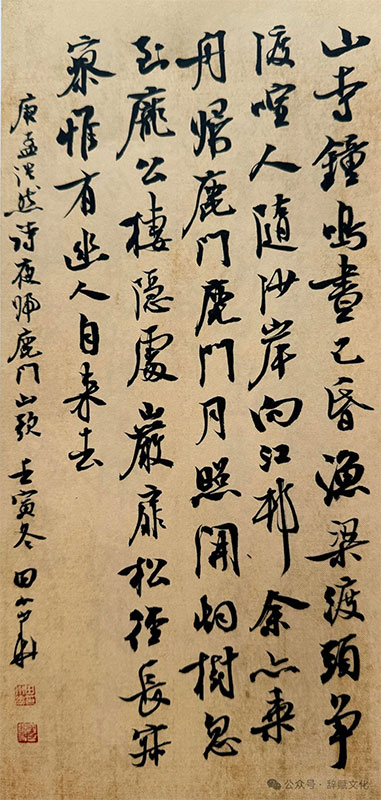 山寺鐘鳴晝已昏漁梁渡頭爭
渡喧人隨沙岸向江邨余亦乘
舟歸鹿門鹿門月照開烟樹忽
到龐公棲隱處巖扉松徑長寂
寥惟有幽人自来去
唐孟浩然诗夜歸鹿门山歌 壬寅冬 田
公众号·辞赋文化